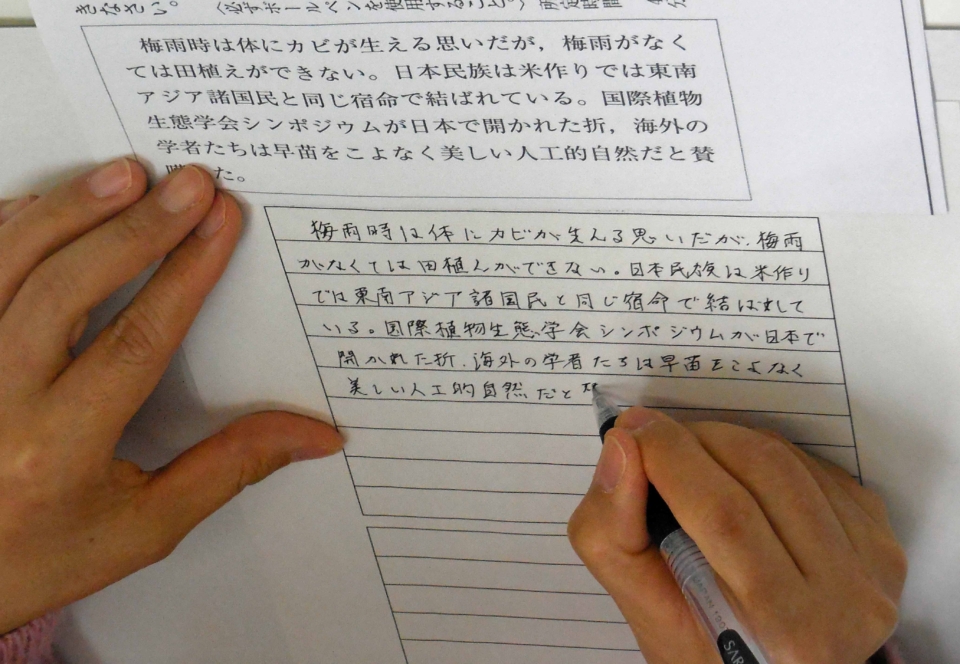 きなさい。（必ずボールペンを使用すること。）所定時間
梅雨時は体にカビが生える思いだが，梅雨がなく
ては田植えができない。日本民族は米作りでは東南
アジア諸国民と同じ宿命で結ばれている。国際植物
生態学会シンポジウムが日本で開かれた折，海外の
学者たちは早苗をこよなく美しい人工的自然だと賛
た。
梅雨時は体にカビが生える思いだが、梅雨
がなくては田植えができない。日本民族は米作り
では東南アジア諸国民と同じ宿命で結ばれて
いる。国際植物生態学会シンポジウムが日本で
開かれた折、海外の学者たちは早苗をこよなく
美しい人工的自然だと
SAR